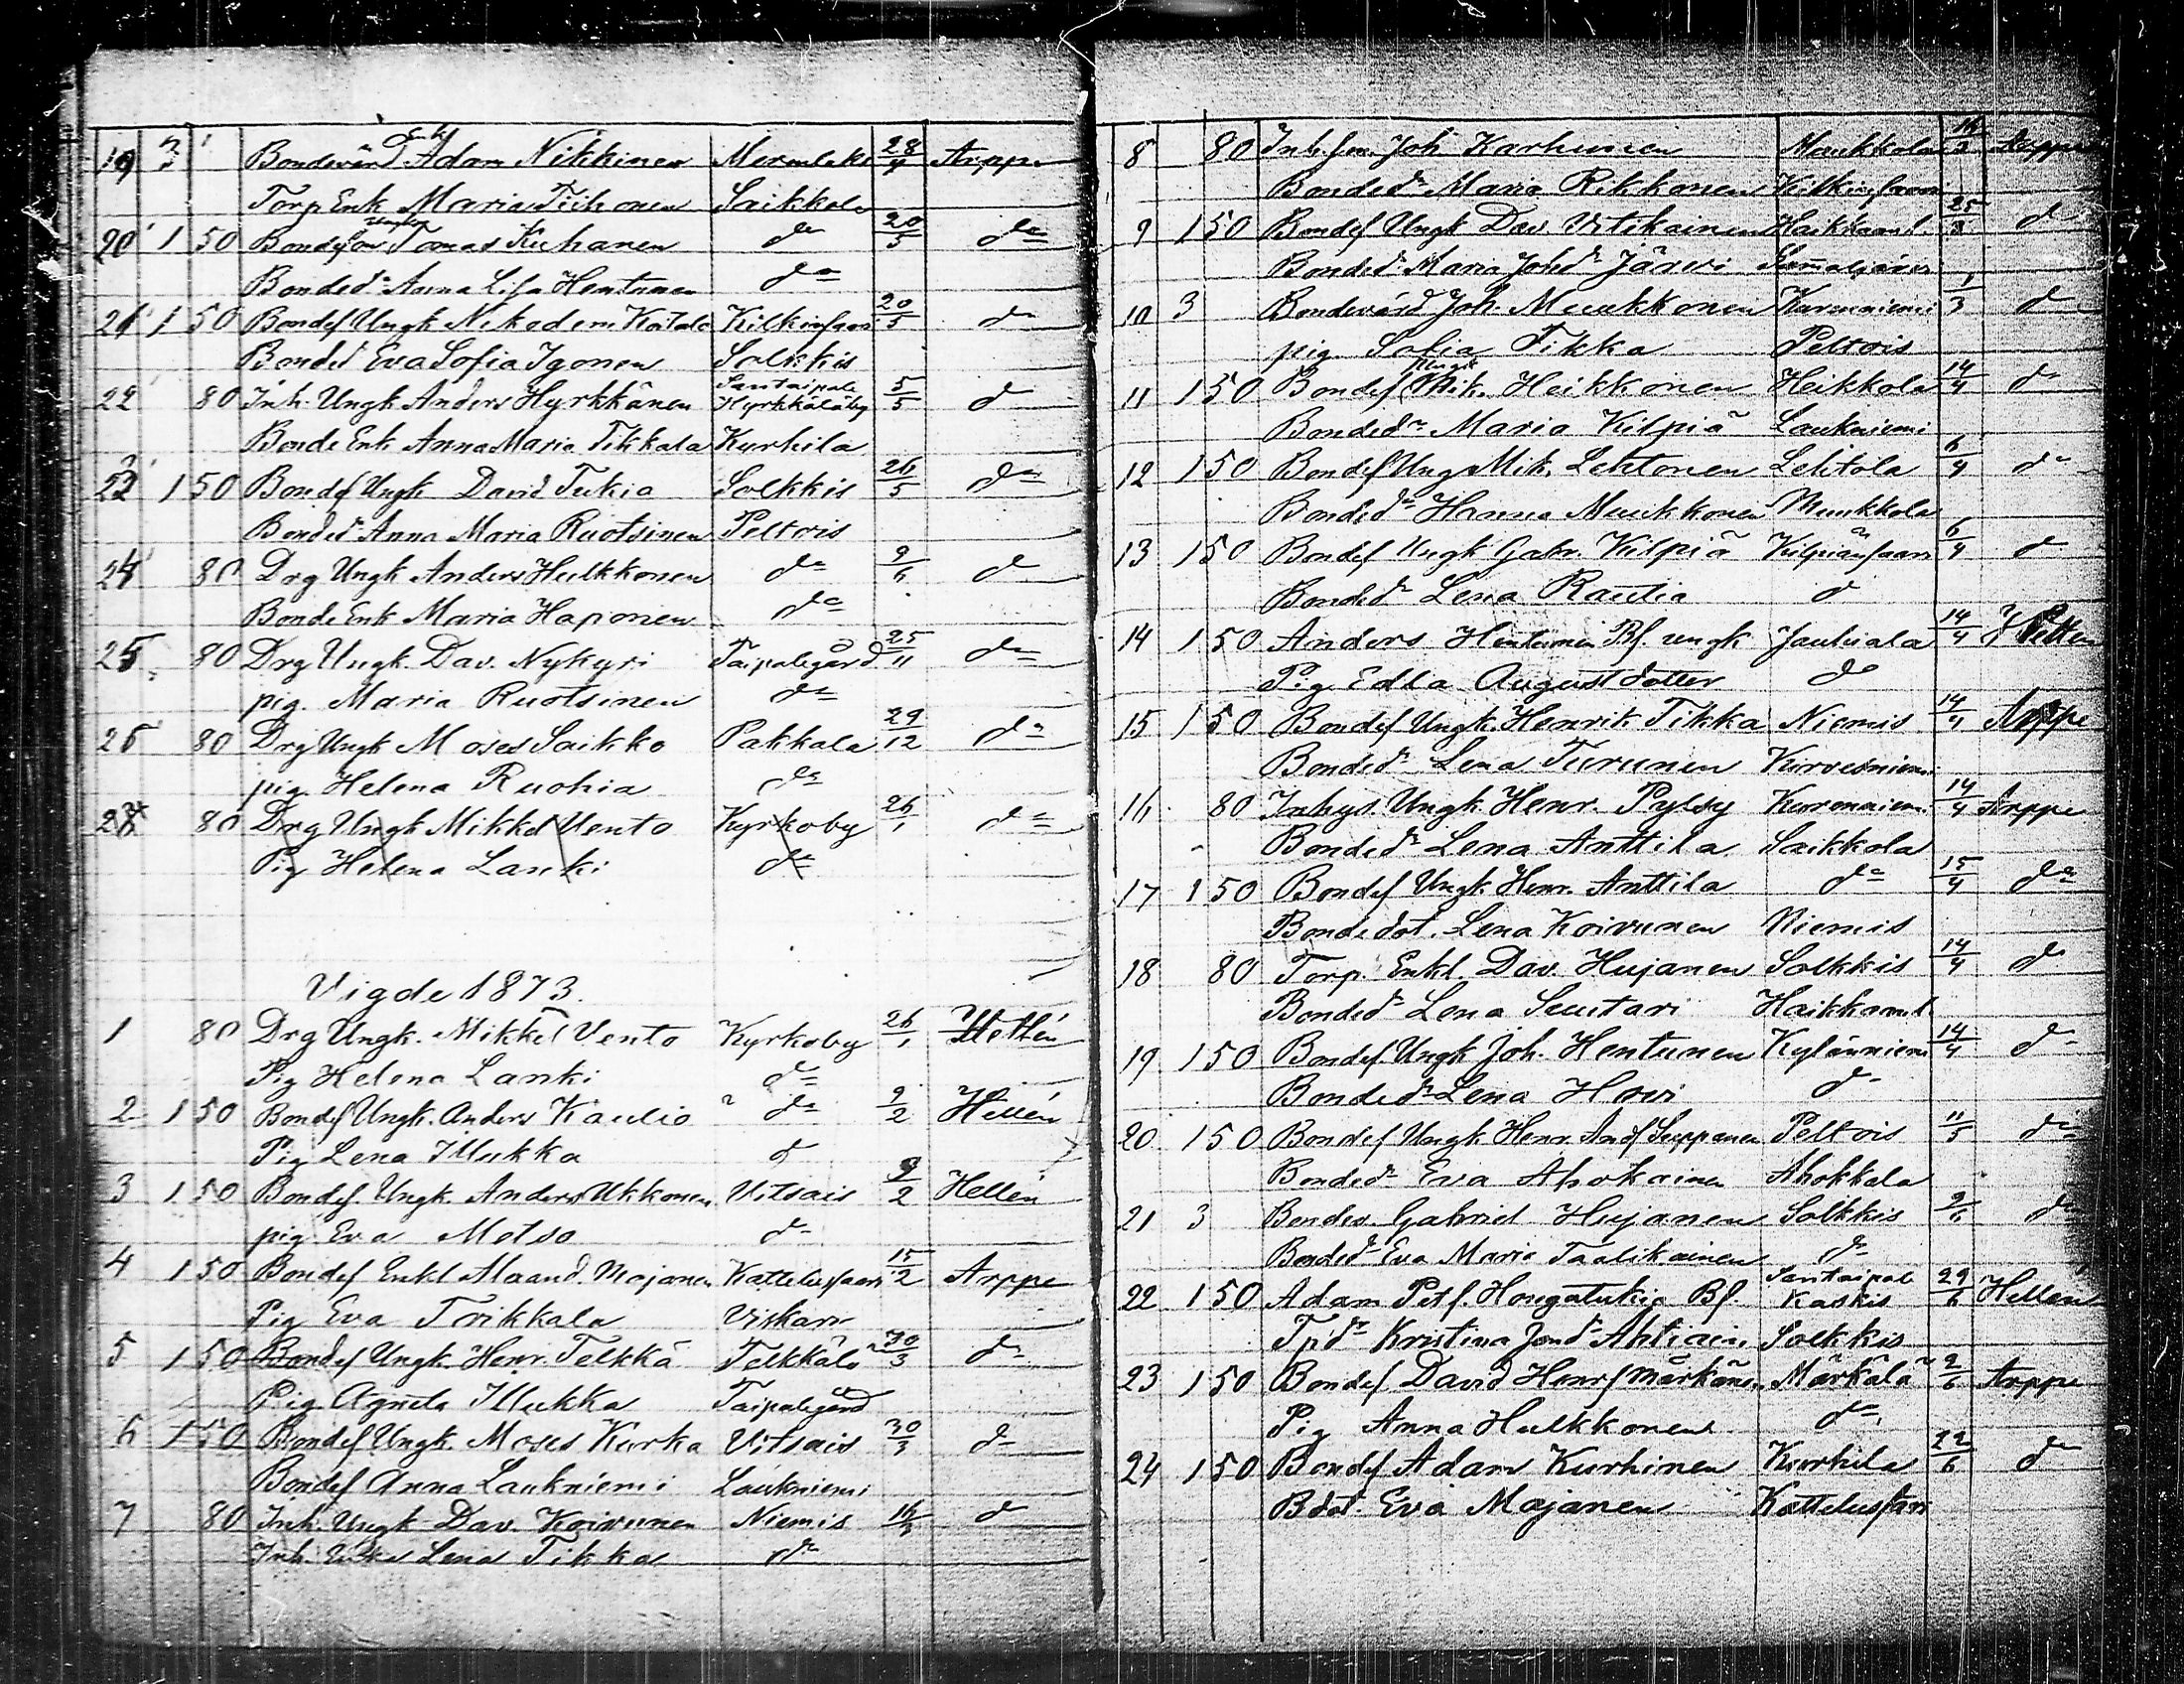 19 3 Bondevärd Enkl Adam Nikkinen Mermlaks 28/4 Arppe
Torp Enk Maria Tiihonen Saikkola
20 1 50 Bondeson Ungk Tomas Kuhanen do 20/5 do
Bonded:r Anna Lisa Hentunen do
21 1 50 Bondes Ungk Nikodem Katala Kilkinsaari 20/5 do
Bonded Eva Sofia Igonen Solkkis
22 80 Inh. Ungk Anders Hyrkkänen Savitaipale Hyrkkäläby 5/5 do
Bonde Enk Anna Maria Tikkala Kurhila
23 1 50 Bondes Ungk David Tukia Solkkis 26/5 do
Bonded:r Anna Maria Ruotsinen Peltois
24 80 Drg Ungk Anders Hulkkonen do 9/6 do
Bonde Enk Maria Haponen do
25 80 Drg Ungk. Dav. Nykyri Taipalegård 25/11 do
pig. Maria Ruotsinen do
26 80 Drg Ungk Moses Saikko Pakkala 29/12 do
pig. Helena Ruohia do
80 Drg Ungk Mikkel Vento Kyrkoby 26/1 do
Pig Helena Lanki do
Vigde 1873.
1 80 Drg Ungk. Mikkel Vento Kyrkoby 26/1 Hellén
Pig Helena Lanki do
2 1 50 Bondes Ungk. Anders Kaulio do 9/2 Hellén
Pig Lena Illukka do
3 1 50 Bondes. Ungk. Anders Ukkonen Vitsais 9/2 Hellén
pig Eva Motso do
4 1 50 Bondes Enkl Maand. Majanen Kattelussaari 15/2 Arppe
Pig Eva Toikkala
5 1 50 Bondes Ungk. Henr. Telkkä Telkkälä 30/3 do
Pig Agneta Illukka Taipalegård
6 1 50 Bondes Ungk. Moses Kurka Vitsais 30/3 do
Bondes Anna Laukniemi Laukniemi
7 80 Inh. Ungk Dav. Koivunen Niemis 16/3 do
Inh. Lena Tikka do
8 80 Inh. son Joh Karhunen Munkkola 16/3 Arppe
Bonded:r Maria Rikkonen Kilkinsaari
9 1 50 Bondes Ungk Dav. Utikainen Haikkaanl. 25/3 do
Bonded:r Maria Johd:r Järvi
10 3 Bondevärd Joh. Muukkonen Kurenniemi 1/3 do
pig Sofia Tikka Peltois
11 1 50 Bondes Ungk Mik. Heikkonen Heikkola 14/4 do
Bonded:r Maria Kilpiä Laukniemi
12 1 50 Bondes Ung Mik. Lehtonen Lehtola 6/4 do
Bonded:r Hanna Muukkonen Munkkola
13 1 50 Bondes Ungk Gabr. Kilpiä Kilpiänsaari 6/4 do
Bonded:r Lena Rautia do
14 1 50 Anders Hentunen Bs. ungk Jauhiala 14/4
Pig Edla August dotter do
15 1 50 Bondes Ungk. Henrik Tikka Niemis 14/4 Arppe
Bonded:r Lena Turunen Kirvesniemi
16 80 Inhys. Ungk. Henr. Pylsy Kurenniemi 14/4 Arppe
Bonded:r Lena Anttila Saikkola
17 1 50 Bondes Ungk. Henr. Anttila do 15/4 do
Bondedot. Lena Koivunen Niemis
18 80 Torp. Enkl. Dav. Hujanen Solkkis 14/4 do
Bonded:r Lena Suutari Haikkaanl.
19 1 50 Bondes. Ungk Joh. Hentunen Kylänniemi 14/4 do
Bonded:r Lena Hovi do
20 1 50 Bondes Ungk Henr. Ands Seppänen Peltois 11/5 do
Bonded:r Eva Ahokainen Ahokkala
21 3 Bondes. Gabriel Hujanen Solkkis 9/6 do
Bonded:r Eva Maria Taalikainen do
22 1 50 Adam Pets. Hongatukia Bs. Savitaipal Kaskis 29/6 Hellén
Tpd:r Kristina Jond:r Ahtiain. Solkkis
23 1 50 Bondes David Henrs Märkänen Märkälä 2/6 Arppe
Pig Anna Hulkkonen do
24 1 50 Bondes Adam Kurhinen Kurhila 22/6 do
Bdot. Eva Majanen Kattelussari